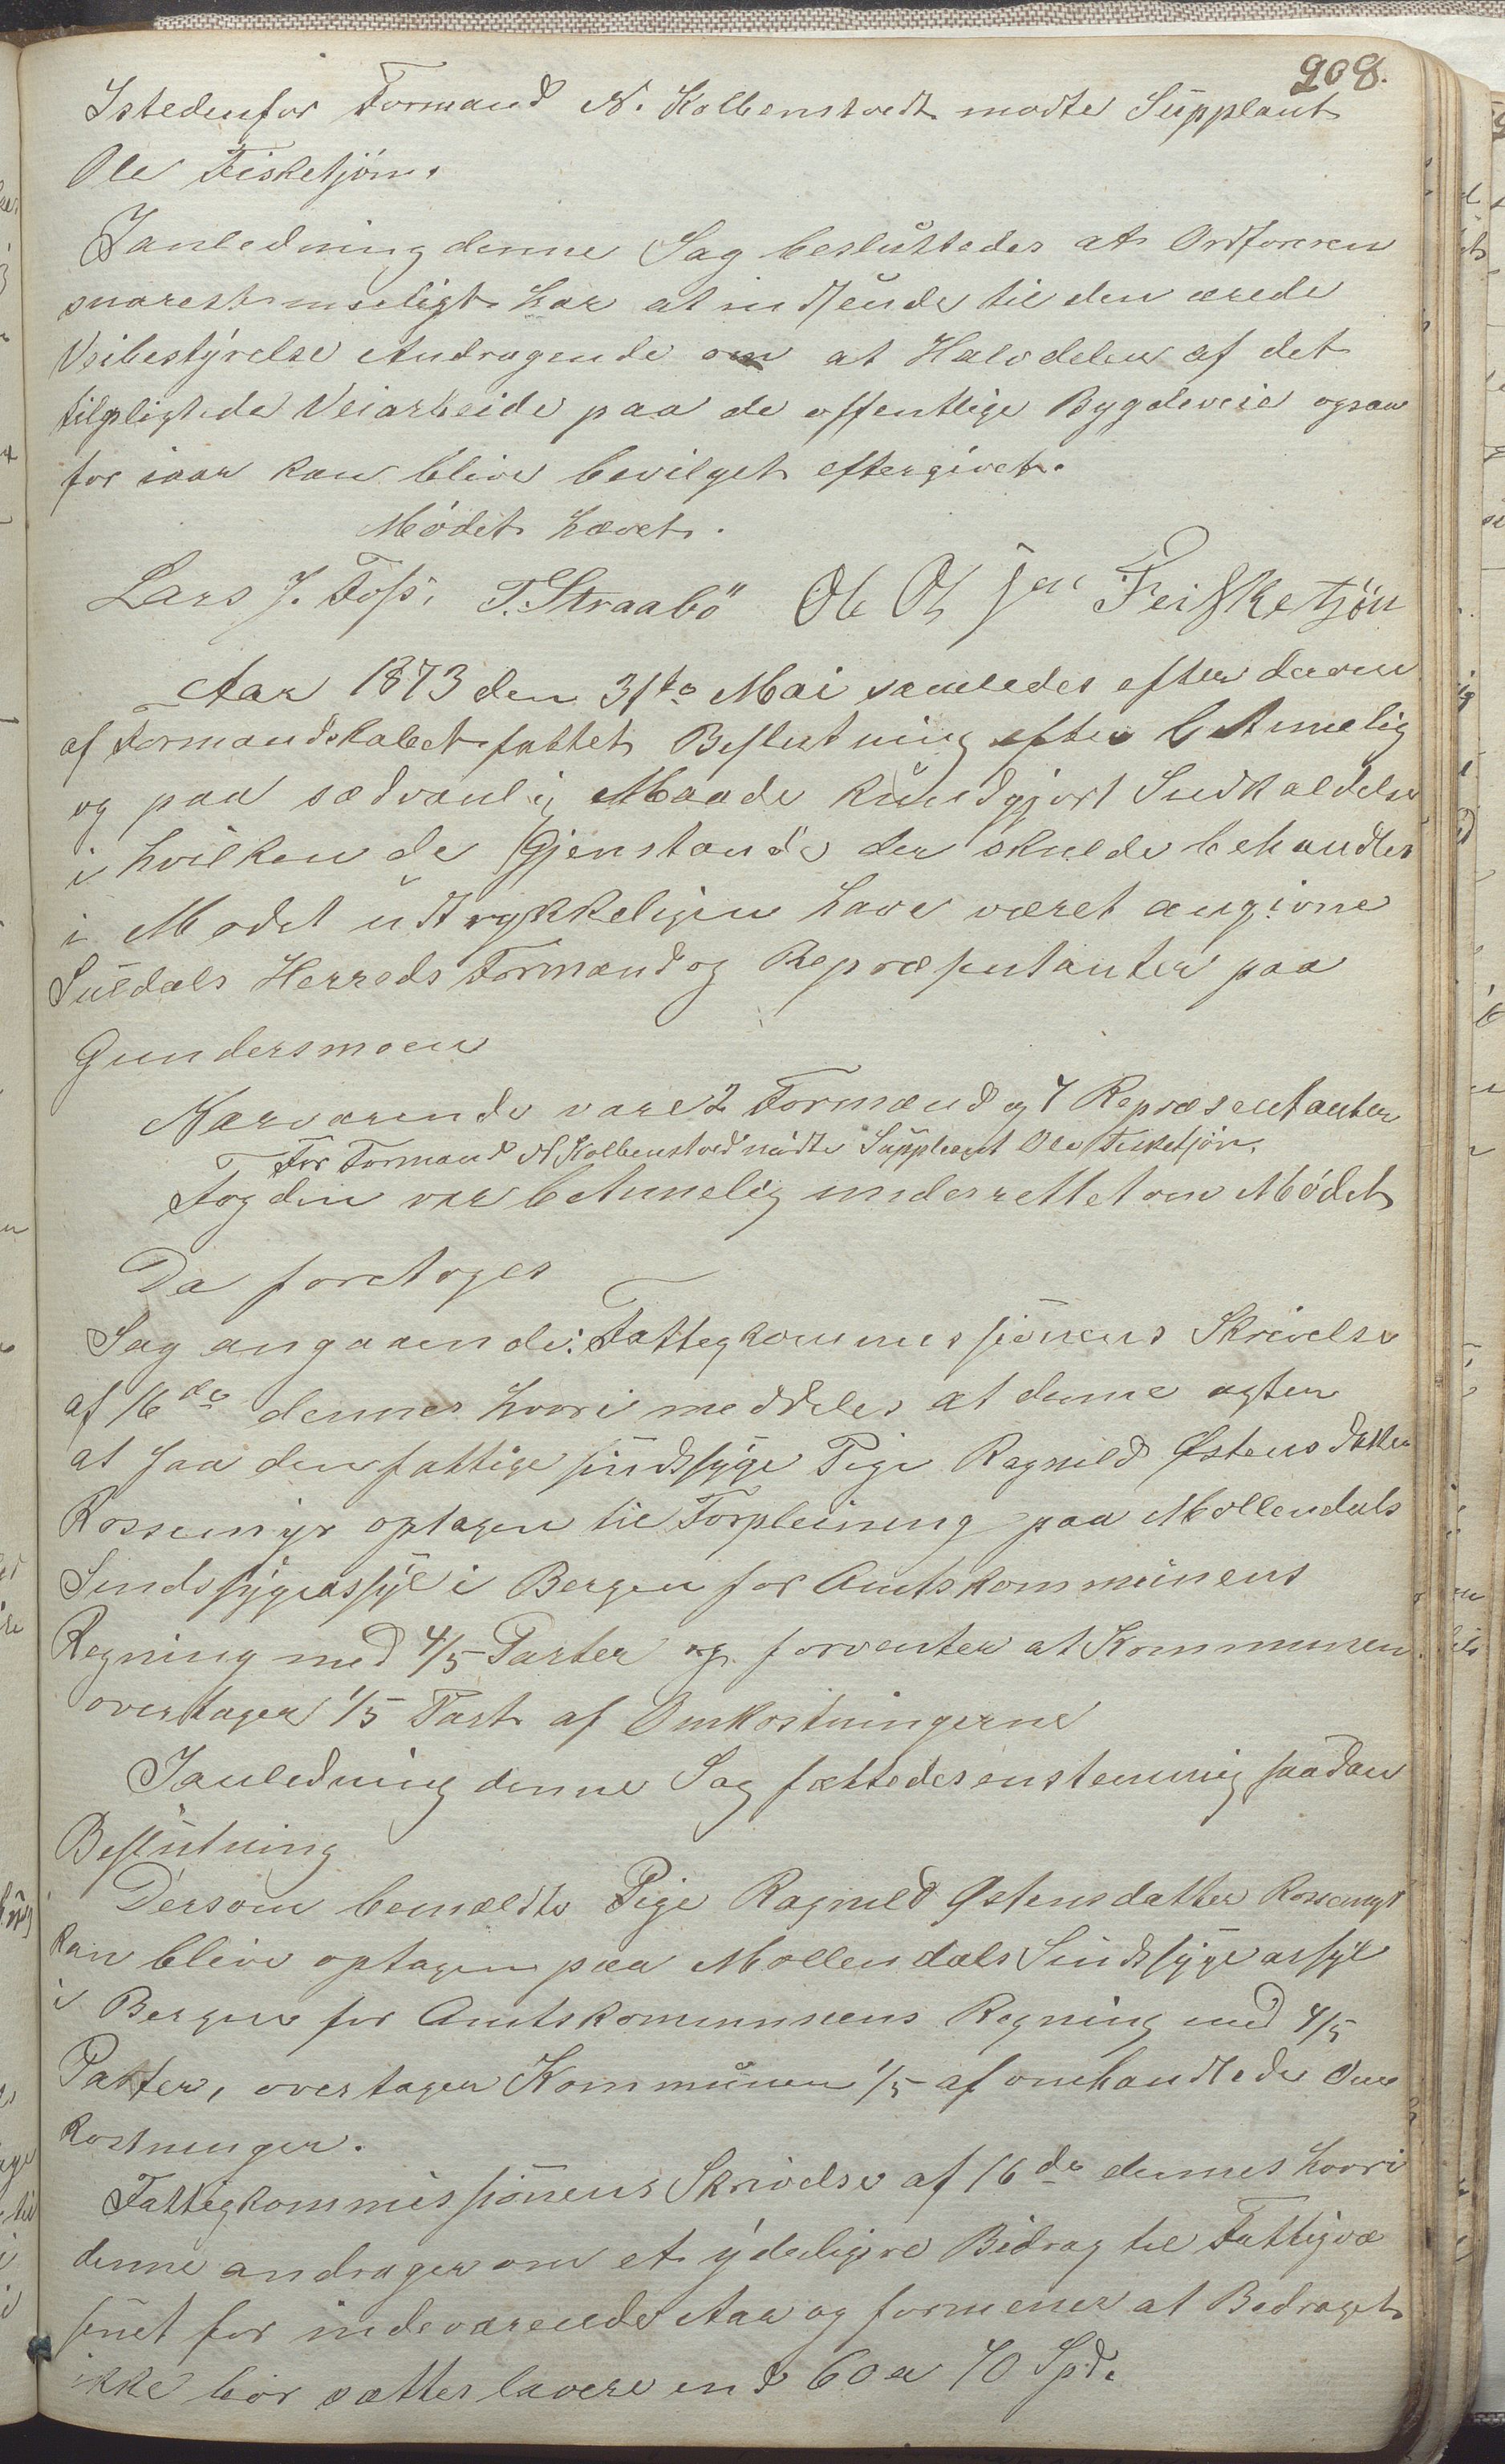 208.
Istedenfor Formand N. Kolbenstvedt mødte Supplant
Ole Fisketjøn.
Ianledning denne Sag besluttedes at Ordføreren
snarest mueligt har at indsende til den ærede
Veibestyrelse Andragende om at Halvdelen af det
tilpligtede Veiarbeide paa de offentlige Bygdeveie ogsaa
for iaar kan blive bevilget eftergivet.
Mødet hævet.
Lars J. Foss, T. Straabø Ole Ols Jen Feisketjøn
Aar 1873 den 31te Mai samledes efter derom
af Formandskabet fattet Beslutning efter betimelig
og paa sædvanlig Maade kundgjort Indkaldelse
i hvilken de Gjenstande der skulde behandles
i Mødet udtrykkeligen have været angivne
Suldals Herreds Formænd og Repræsentanter paa
Gundersmoen
Nærværende vare 2 Formænd og 7 Repræsentanter
For Formand N Kolbenstvedt mødte Suppleant Ole Fisketjøn.
Fogden var betimelig underrettet om Mødet
Da foretoges
Sag angaaende: Fattigkommissionens Skrivelse
af 16de dennes hvori meddeles at denne agter
at faa den fattige sindssyge Pige Ragnild Østensdatter
Rossemyr optagen til Forpleining paa Møllendals
Sindssygeassyl i Bergen for Amtskommunens
Regning med 4/5 Parter og forventer at Kommunen
overtager 1/5 Part af Omkostningerne
Ianledning denne Sag fattedes enstemmig saadan
Beslutning
Dersom bemældte Pige Ragnild Østensdatter Rossemyr
kan blive optagen paa Møllendals Sindssygeassyl
i Bergen for Amtskommunens Regning med 4/5
Parter, overtager Kommunen 1/5 af omhandlede Om
kostninger.
Fattigkommissionens Skrivelse af 16de dennes hvori
denne andrager om et ydeligere Bidrag til Fattigvæ
senet for indeværende Aar og formener at Bedraget
ikke bør sættes lavere end 60 a 70 Spd.